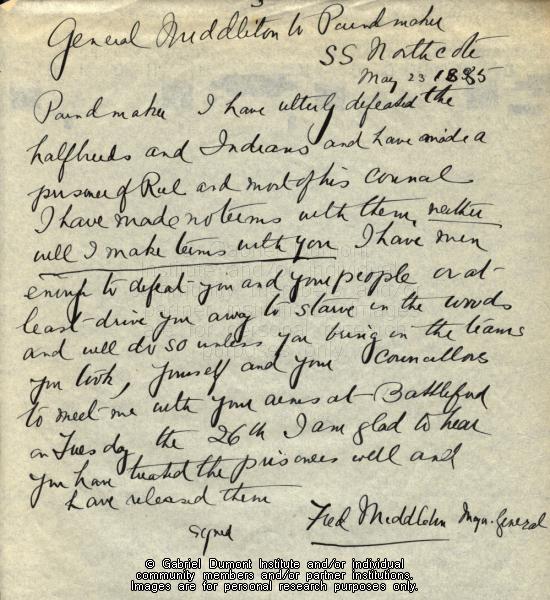 General Middleton to Poundmaker
SS Northcote
May 23 1885
Poundmaker I have utterly defeated the
halfbreeds and Indians and have made a
prisoner of Riel and most of his council
I have made no terms with them, neither
will I make terms with you I have men
enough to defeat you and your people or at
least drive you away to starve in the woods
and will do so unless you bring in the teams
you took, yourself and your Councillors
to meet me with your arms at Battleford
on Tuesday the 26th I am glad to hear
you have treated the prisoners well and
have released them
signed Fred Middleton Major General
© Gabriel Dumont Institute and/or individual
community members and/or partner institutions.
Images are for personal research purposes only.